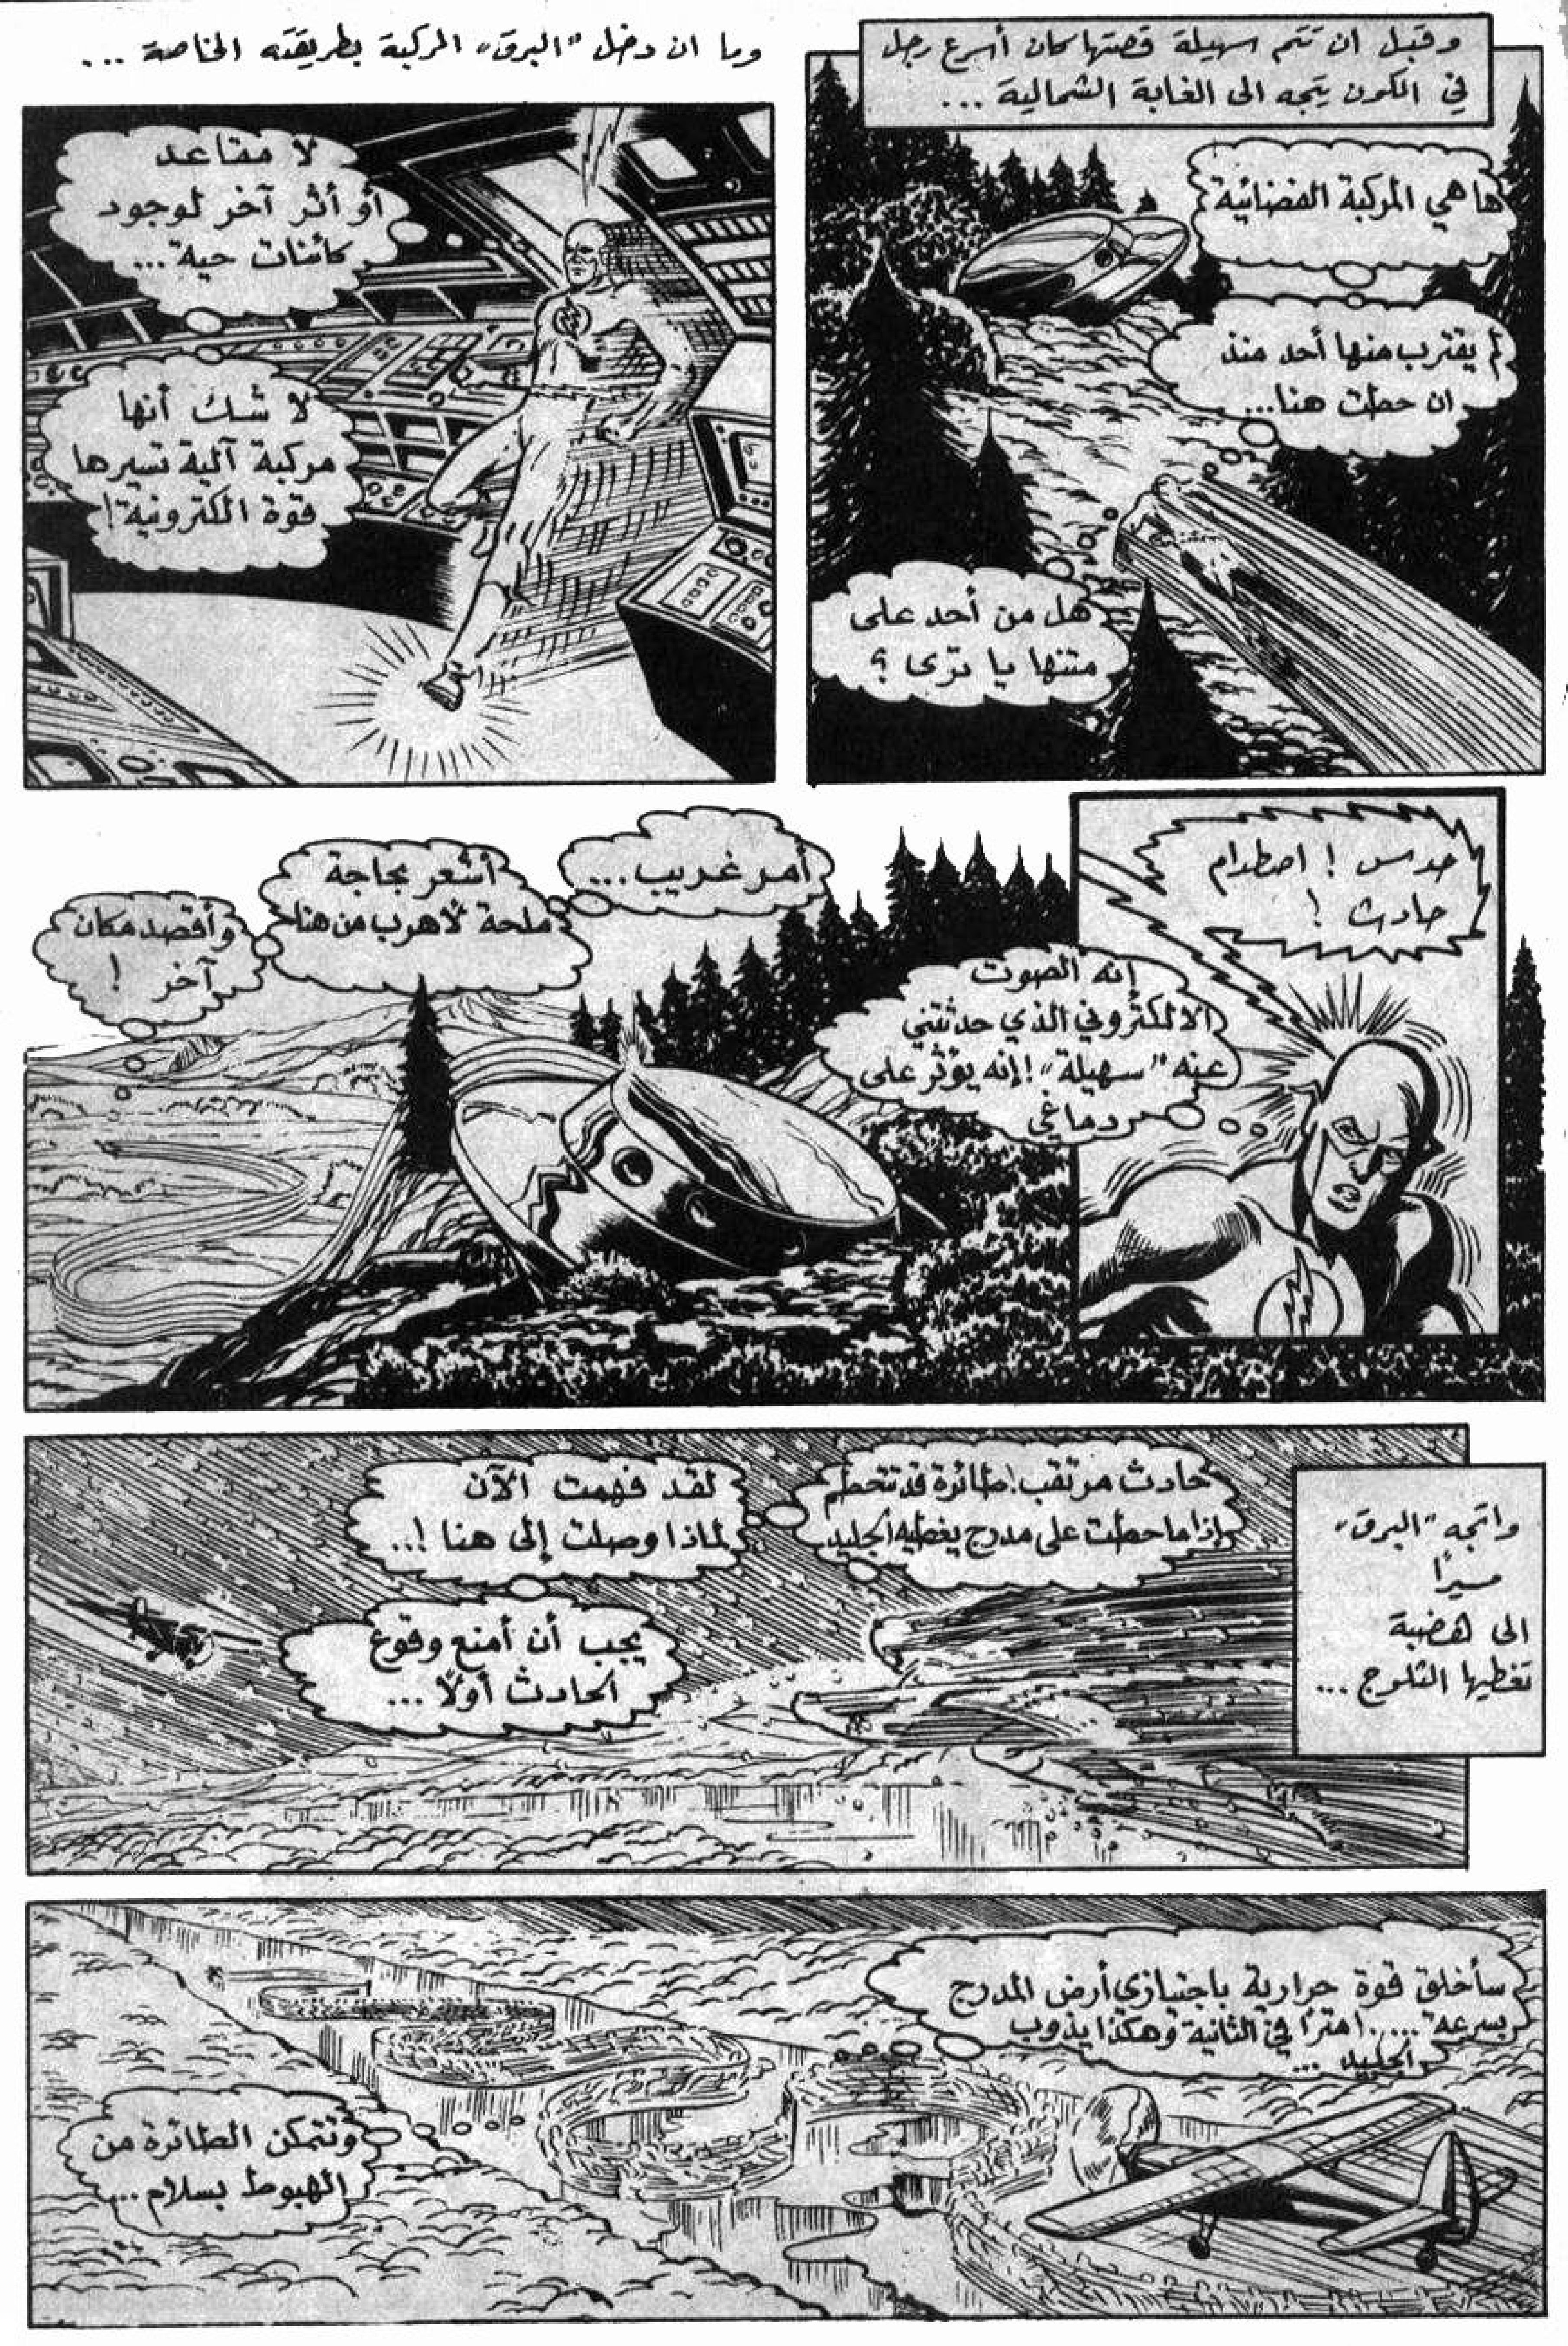 وقبل ان تتم سهيلة قصتها كان أسرع رجل
في الكون يتجه الى الغابة الشمالية ...
ها هي المركبة الفضائية
لم يقترب منها أحد منذ
ان حطت هنا...
هل من أحد على
متنها يا ترى ؟
وما ان دخل "البرق" المركبة بطريقته الخاصة ...
لا مقاعد
أو أثر آخر لوجود
كائنات حية ...
لا شك أنها
مركبة آلية تسيرها
قوة الكترونية !
حدس ! اصطدام
حادث !
إنه الصوت
الالكتروني الذي حدثتني
عنه "سهيلة" ! إنه يؤثر على
دماغي
أمر غريب ...
أشعر بحاجة
ملحة لأهرب من هنا
وأقصد مكان
آخر !
واتجه "البرق"
مسيرًا
الى هضبة
تغطيها الثلوج ...
حادث مرتقب ! طائرة قد تتحطم
إذا ما حطت على مدرج يغطيه الجليد
لقد فهمت الآن
لماذا وصلت إلى هنا !..
يجب أن أمنع وقوع
الحادث أولاً ...
سأخلق قوة حرارية باجتيازي أرض المدرج
بسرعة ١٠٠٠٠ مترًا في الثانية وهكذا يذوب
الجليد ...
وتتمكن الطائرة من
الهبوط بسلام ...